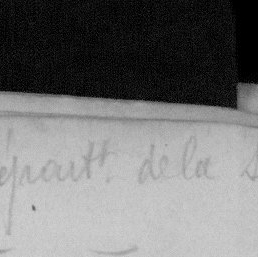 épartt. de la S